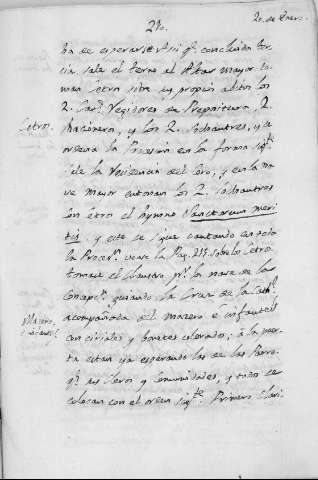 210.
20. de Enero.
ha de esperarse Assi q.e concluida ter
cia sale el terno al Altar mayor to
man Cetro sobre su propio abito los
2. Cap.s Vegidores de Prepositura, 2.
Racioneros, y los 2. Sochantres, y se
ordena la Procesion en la forma sig.te
de la Residencia del Coro, y en la na
ve mayor entonan los 2. Sochantres
con otro el hymno Sanctorum meri
tis, y este se sigue cantando en toda
la Proces.n vease la Pag. 213. sobre los Cetros
Cetros.
tomase el Claustro p.r la nave de la
Concepc.n guiando la Cruz de la Cath.l
acompañada del macero e infantes
con ciriales y bonetes colorados; a la puer
ta estan ya esperando las de las Parro
q.s sus Cleros y Comunidades, y todo se
colocan con el orden sig.te Primero Clari
Macero,